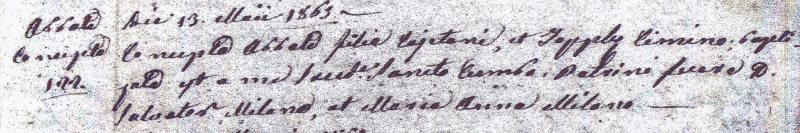 Abbate Die 13. Maii 1863. —
Concepta Concepta Abbate filia Cajetani, et Cimino, bapti-
122. zata est a me Sacd. Sancto Patrini fuere D.
Salvator Milano, et Maria Anna Milano —